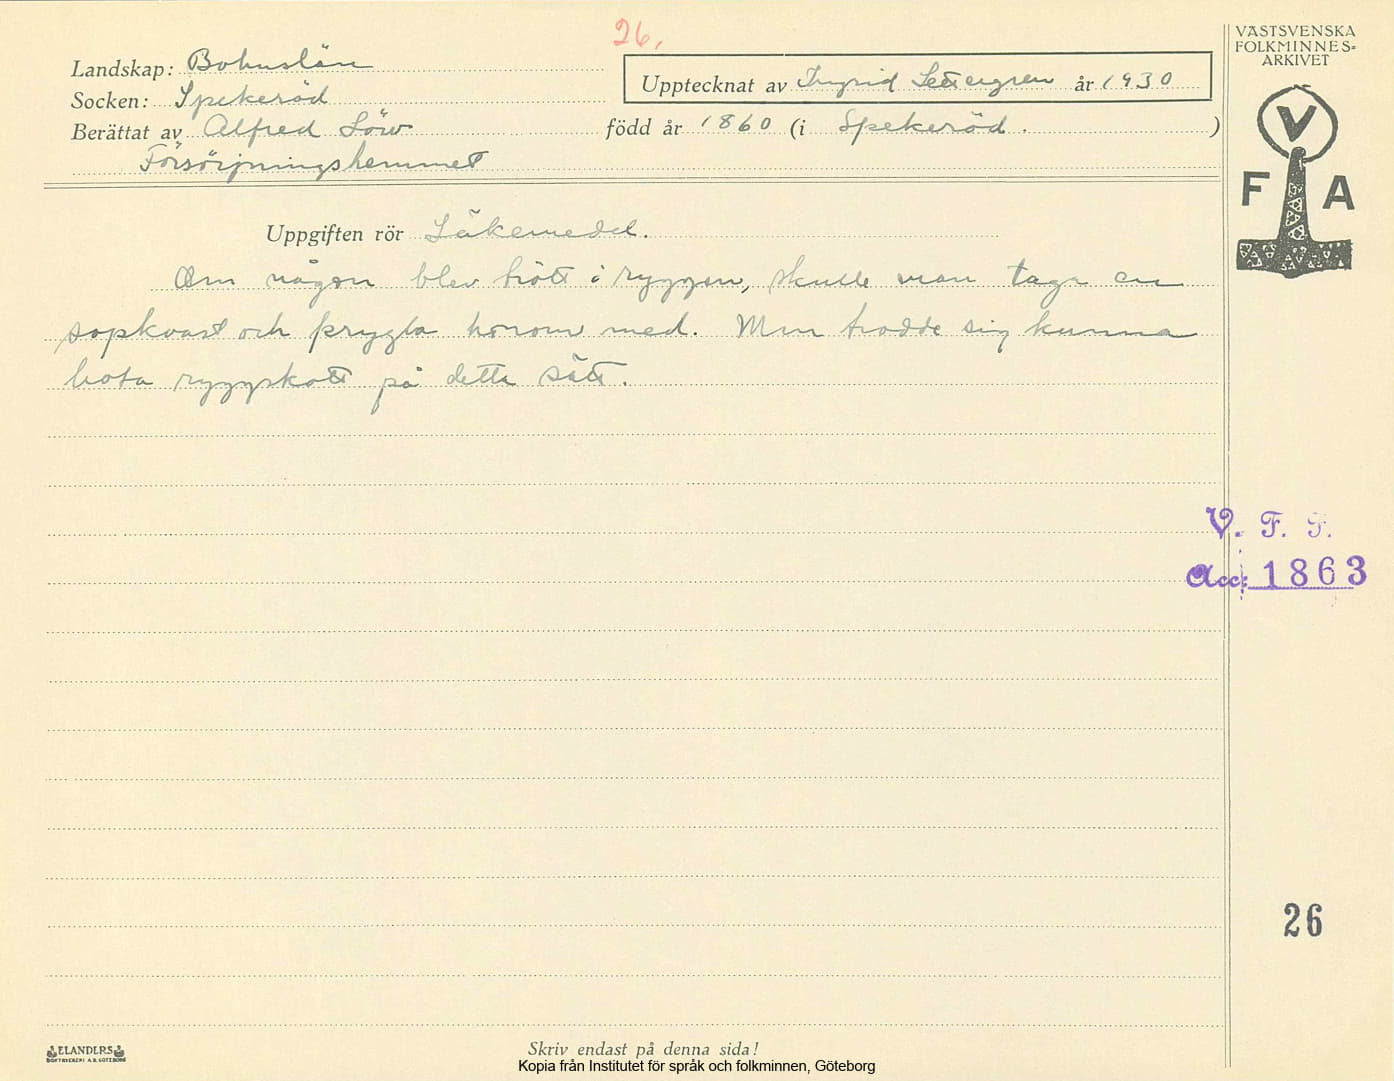 26.
VÄSTSVENSKA
FOLKMINNES=
ARKIVET
Landskap: Bohuslän
Upptecknat av Ingrid Settergren år 1930
Socken: Spekeröd
Berättat av Alfred Löw född år 1860 (i Spekeröd. )
Försörjningshemmet
V
F A
Uppgiften rör Läkemedel.
Om någon blev trött i ryggen, skulle man taga en
sopkvast och prygla honom med. Man trodde sig kunna
bota ryggskott på detta sätt.
V. F. F.
Acc: 1863
26
ELANDERS
BOKTRYCKERI A.B. GÖTEBORG
Skriv endast på denna sida!
Kopia från Institutet för språk och folkminnen, Göteborg